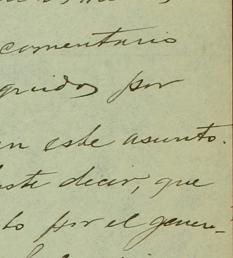 comentario
guidos por
en este asunto.
aste decir, que
to por el gene-